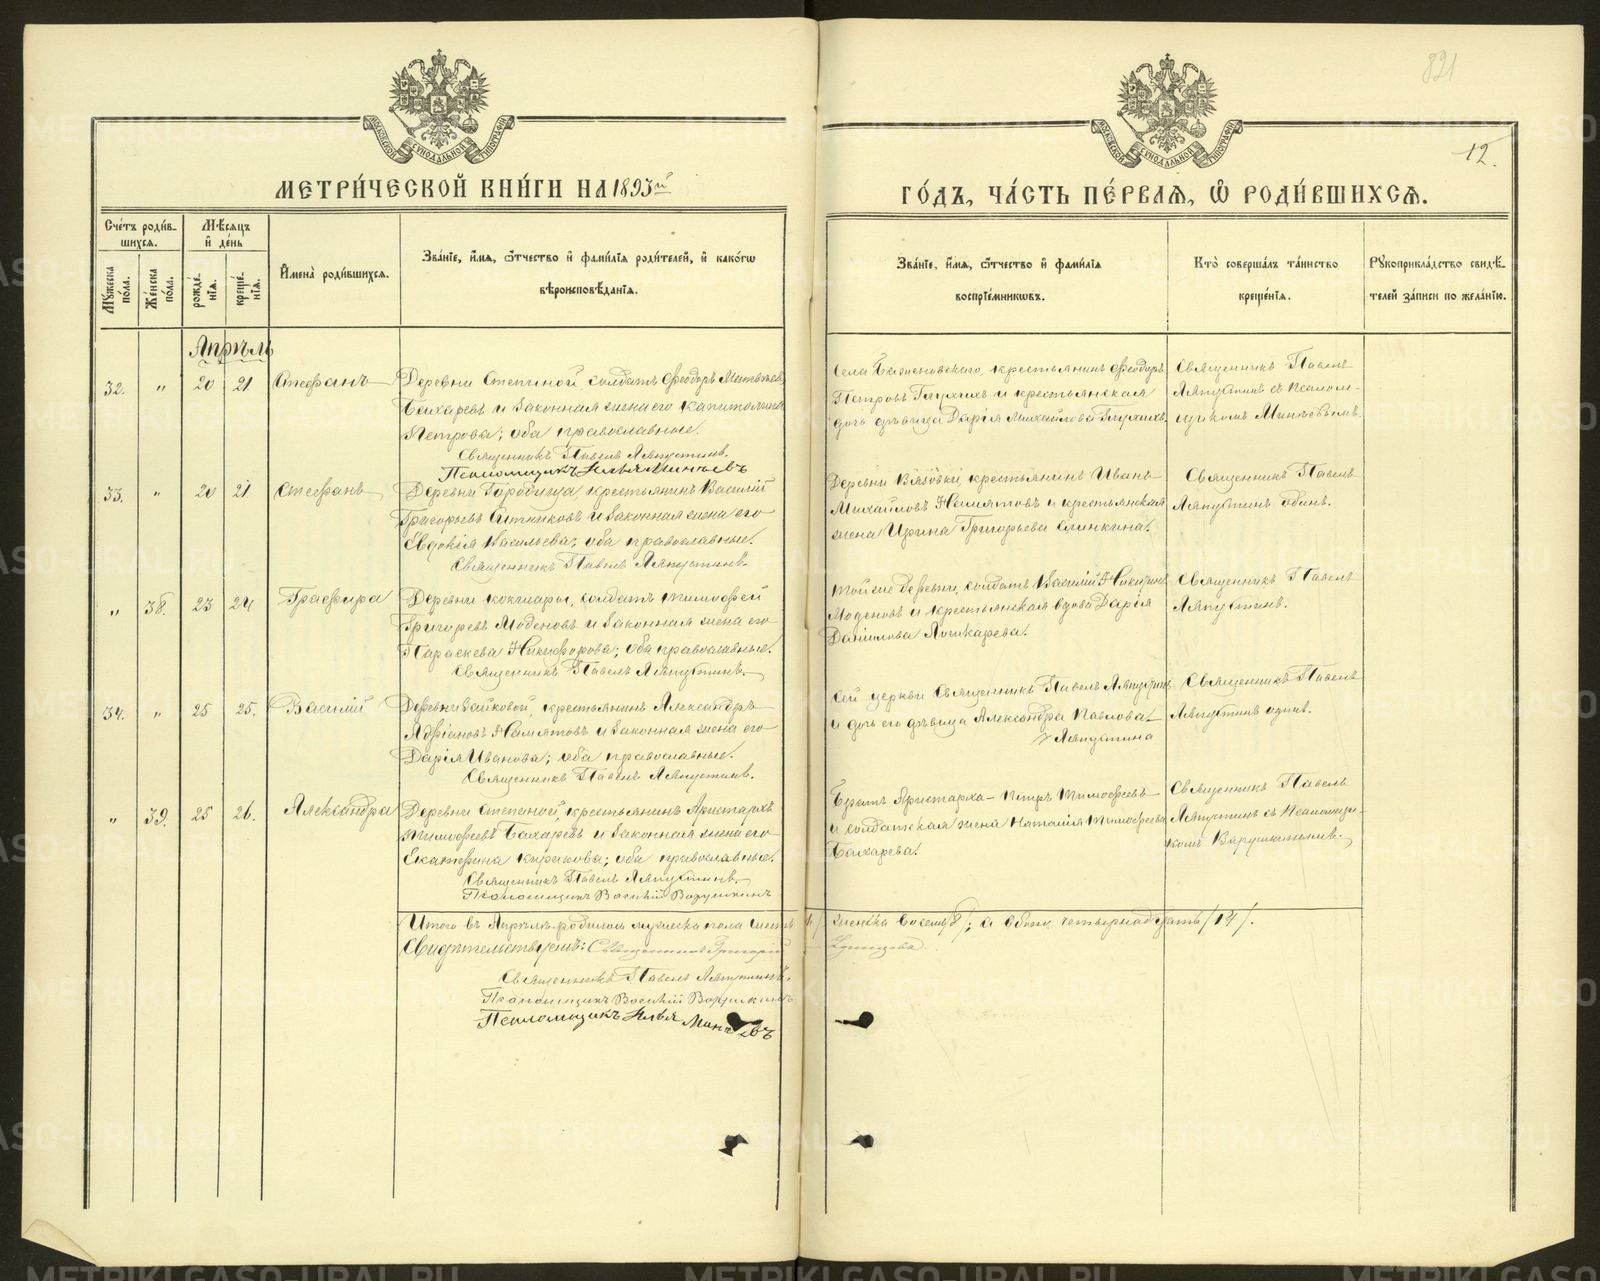 821
12.
МОСКОВСКОЙ СУНОДАЛЬНОЙ ТИПОГРАФІИ
МОСКОВСКОЙ СУНОДАЛЬНОЙ ТИПОГРАФІИ
МЕТРИ́ЧЕСКОЙ КНИ́ГИ НА 1893й
ГО́ДЪ, ЧА́СТЬ ПЕ́РВАЯ, Ѽ РОДИ́ВШИХСЯ.
Сче́тъ роди́в-
шихся.
Мѣ́сяцъ
и҆ де́нь
Му́жеска по́ла.
Же́нска по́ла.
рожде́-
нїя.
креще́-
нїя.
И҆мена̀ роди́вшихся.
Зва́нїе, и҆́мя, ѻ҆́тчество и҆ фами́лїя роди́телей, и҆ како́гѡ
вѣроисповѣ́данїя.
Зва́нїе, и҆́мя, ѻ҆́тчество и҆ фами́лїя
воспрїе́мникѡвъ.
Кто̀ соверша́лъ та́инство
креще́нїя.
Рꙋкоприкла́дство свидѣ́-
телей за́писи по жела́нїю.
Апрѣль
32. " 20 21 Стефанъ
Деревни Степиной, солдатъ Ѳеодоръ Матвѣевъ
Бахаревъ и законная жена его Капитолина
Петрова; оба православные.
Священникъ Павелъ Ляпустинъ.
Псаломщикъ Илья Минѣевъ
Села Баженовскаго, крестьянинъ Ѳеодоръ
Петровъ Глухихъ и крестьянская
дочь дѣвица Дарія Михайлова Глухихъ.
Священникъ Павелъ
Ляпустинъ съ псалом-
щикомъ Минѣевымъ.
33. " 20 21 Стефанъ
Деревни Городища крестьянинъ Василій
Григорьевъ Ситниковъ и законная жена его
Евдокія Васильева; оба православные.
Священникъ Павелъ Ляпустинъ.
Деревни Вязовки, крестьянинъ Иванъ
Михайловъ Немятовъ и крестьянская
жена Ирина Григорьева Слинкина.
Священникъ Павелъ
Ляпустинъ одинъ.
" 38. 23 24 Глафира
Деревни Кокшары, солдатъ Тимофей
Григорьевъ Моденовъ и законная жена его
Параскева Никифорова; оба православные.
Священникъ Павелъ Ляпустинъ.
Той же деревни, солдатъ Василій Никитинъ
Моденовъ и крестьянская вдова Дарія
Данилова Лошкарева.
Священникъ Павелъ
Ляпустинъ.
34. " 25 25. Василій
Деревни Байковой, крестьянинъ Александръ
Адріановъ Немятовъ и законная жена его
Дарія Иванова; оба православные.
Священникъ Павелъ Ляпустинъ.
Сей церкви Священникъ Павелъ Ляпустинъ
и дочь его дѣвица Александра Павлова
Ляпустина
Священникъ Павелъ
Ляпустинъ одинъ.
" 39. 25 26. Александра
Деревни Степиной, крестьянинъ Аристархъ
Тимофеевъ Бахаревъ и законная жена его
Екатерина Кирикова; оба православные.
Священникъ Павелъ Ляпустинъ.
Псаломщикъ Василій Варушкинъ
Братъ Аристарха – Петръ Тимофеевъ
и солдатская жена Наталія Тимофеева
Бахарева.
Священникъ Павелъ
Ляпустинъ съ Псаломщи-
комъ Варушкинымъ.
Итого въ Апрѣлѣ родилось мужеска пола шесть /6/ женска восемь /8/; а обоего четырнадцать /14/.
Свидѣтельствуемъ: Священникъ Григорій
Священникъ Павелъ Ляпустинъ.
Псаломщикъ Василій Варушкинъ
Псаломщикъ Илья Минѣевъ